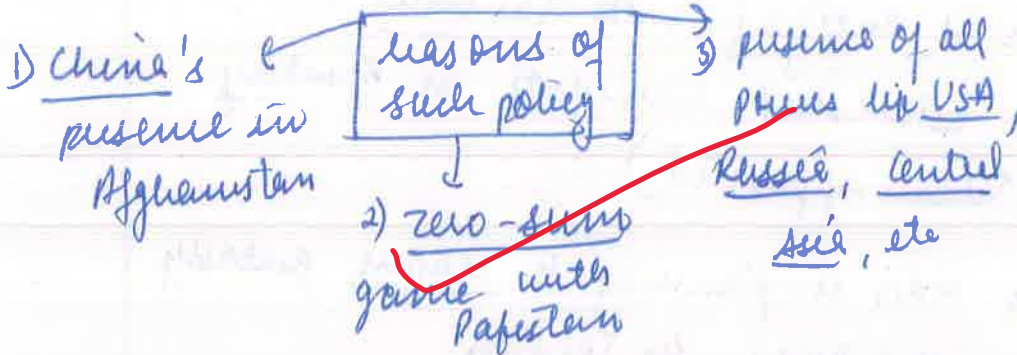 reasons of
such policy
1) China's
presence in
Afghanistan
2) zero-sum
game with
Pakistan
3) presence of all
powers like USA,
Russia, Central
Asia, etc